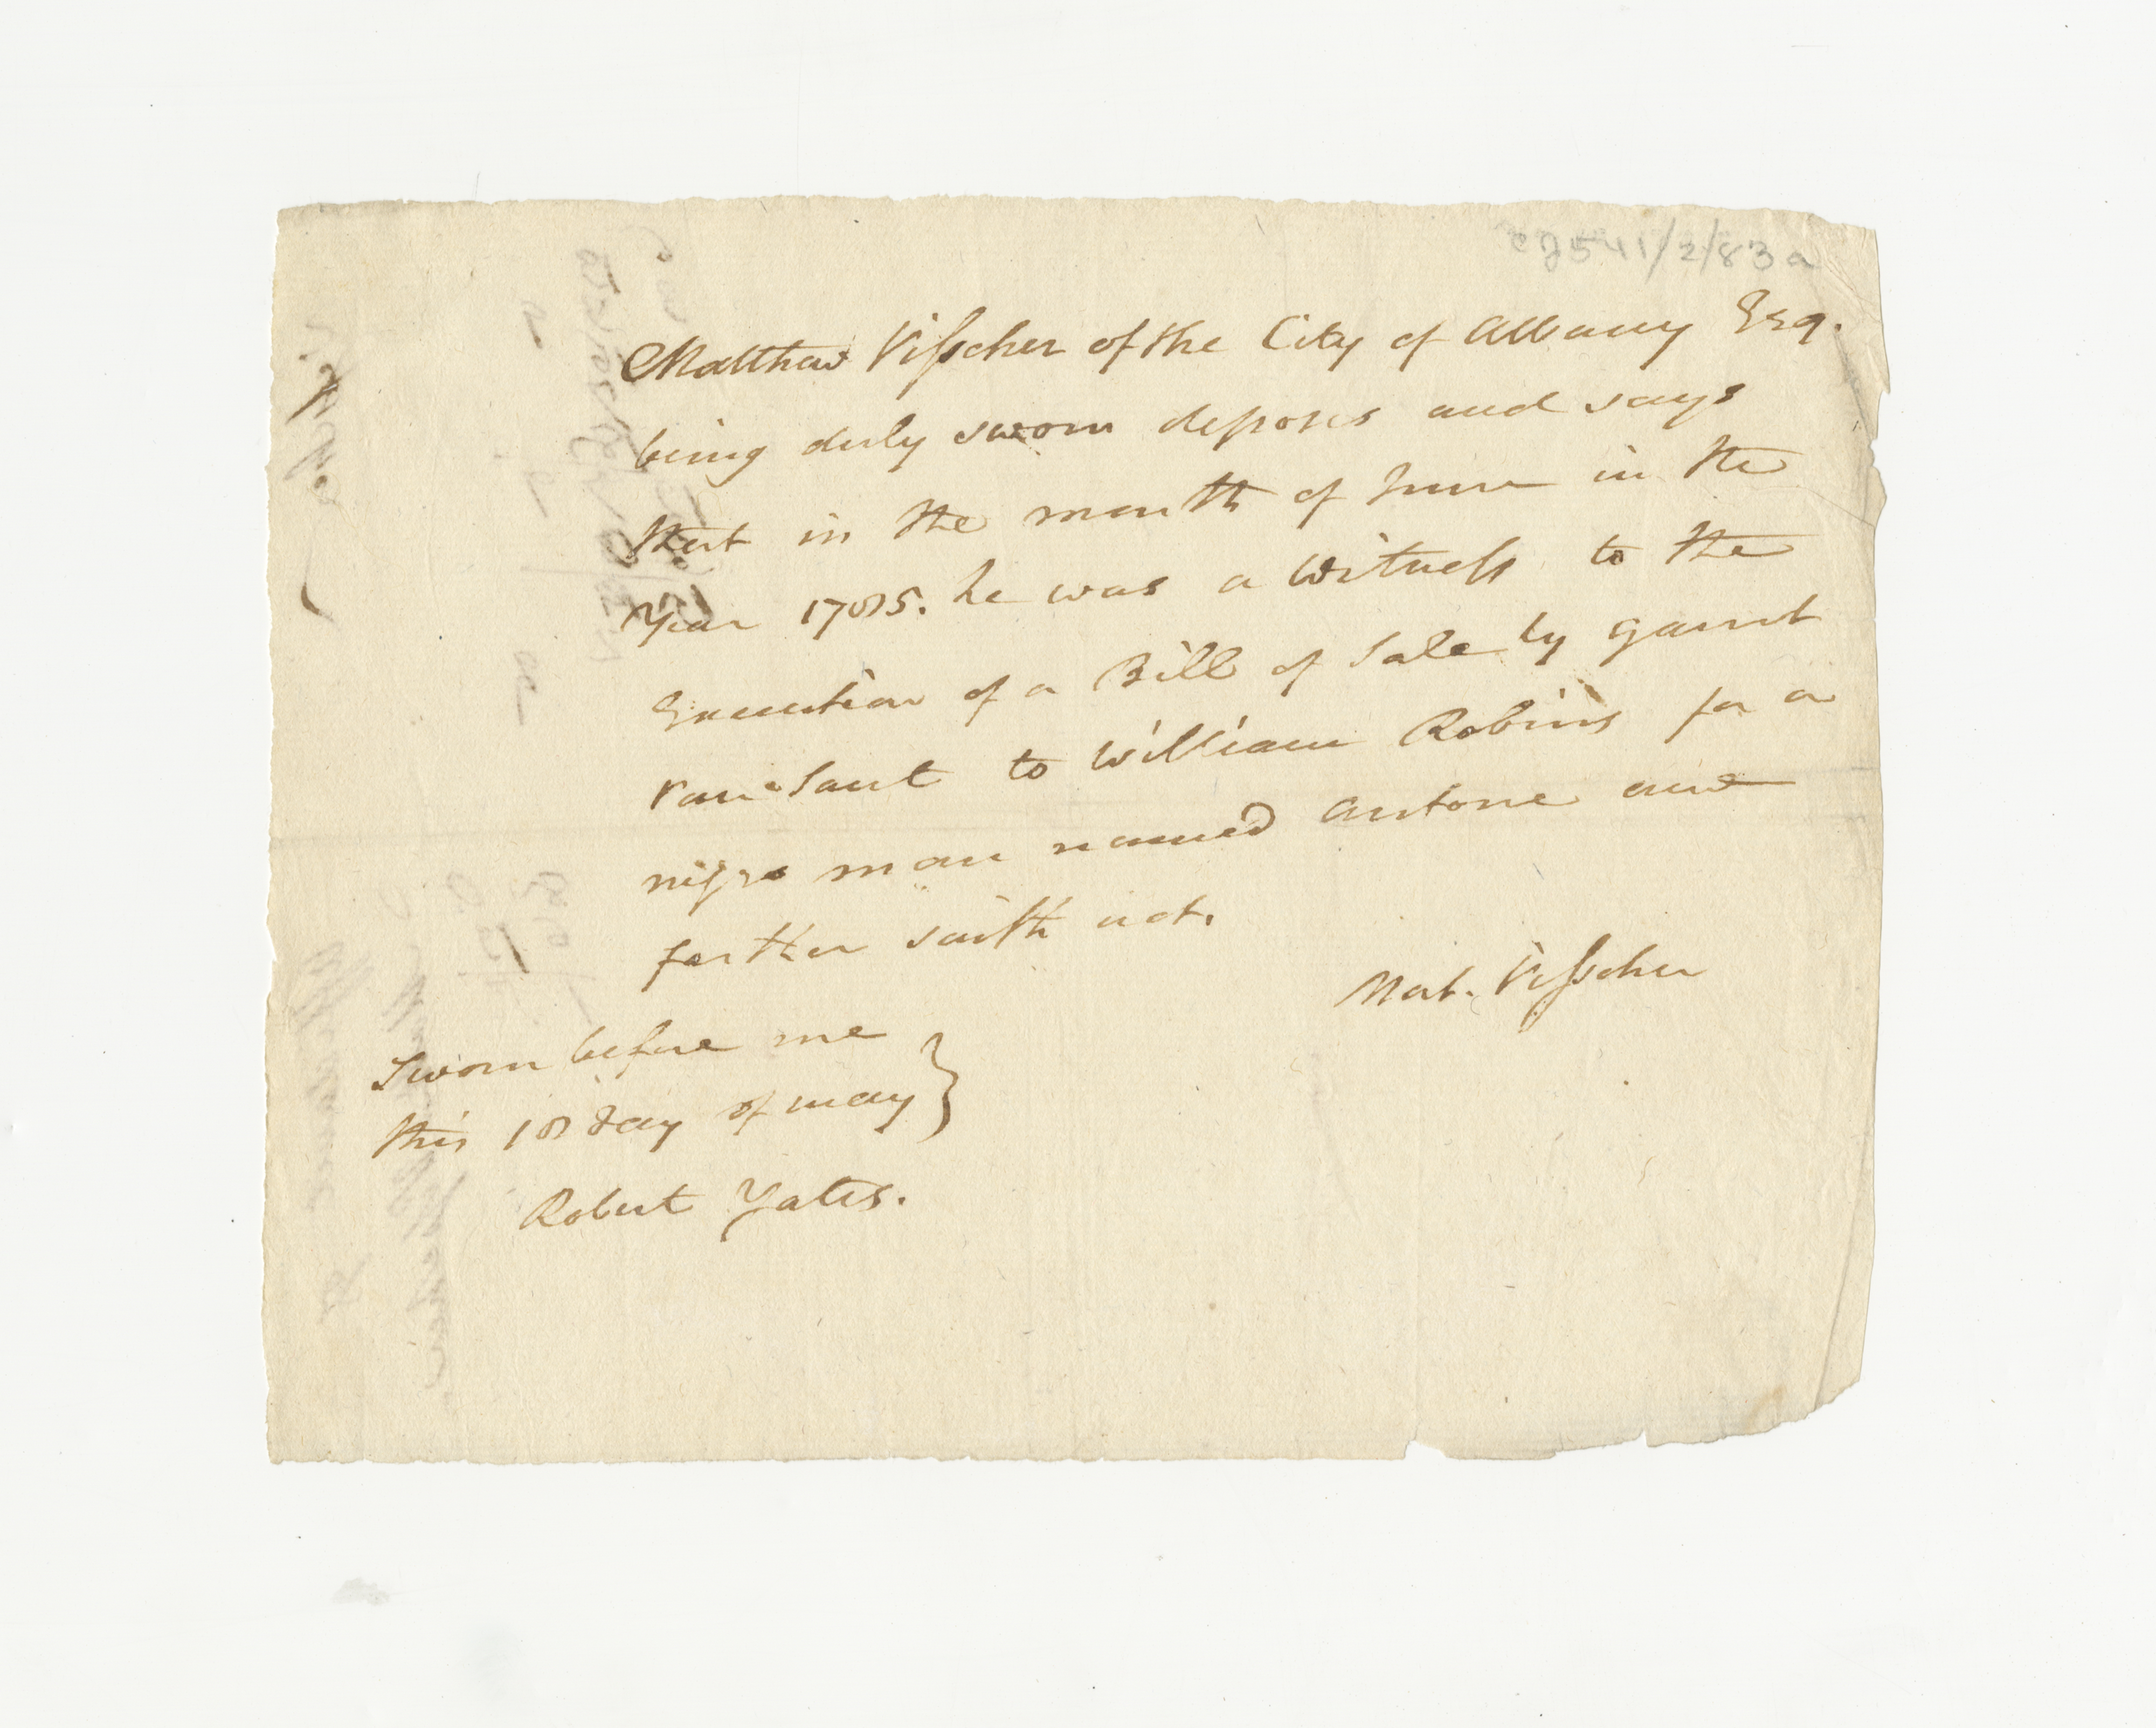 cj541/2/83a
Matthew Visscher of the City of Albany Esq.
being duly sworn deposes and says
that in the month of June in the
Year 1785. he was a Witness to the
Execution of a Bill of Sale by Garrit
van Sant to William Robins for a
negro man named Antone and
further saith not.
Mat. Visscher
Sworn before me
this 18 day of may
Robert Yates.